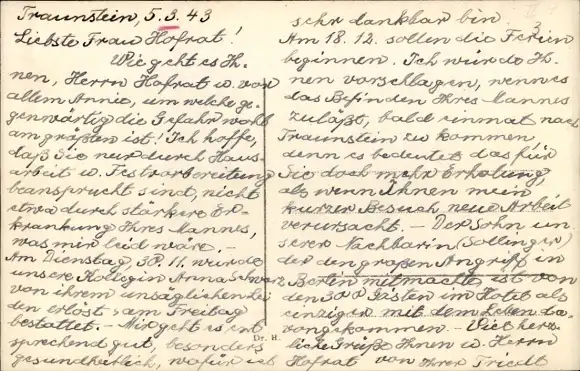 Traunstein, 5.3.43
Liebste Frau Hofrat!
Wie geht es Ih-
nen, Herrn Hofrat u. vor
allem Annie, um welche ge-
genwärtig die Gefahr wohl
am größten ist! Ich hoffe,
daß Sie nur durch Haus-
arbeit u. Festvorbereitung
beansprucht sind, nicht
etwa durch stärkere Er-
krankung Ihres Mannes,
was mir leid wäre. –
Am Dienstag, 30. 11. wurde
unsere Kollegin Anna Schwarz
von ihrem unsäglichen Lei
den erlöst, am Freitag
bestattet. – Mir geht es ent
sprechend gut, besonders
gesundheitlich, wofür ich
Dr. H.
sehr dankbar bin.
3
Am 18. 12. sollen die Ferien
beginnen. Ich würde Ih-
nen vorschlagen, wenn es
das Befinden Ihres Mannes
zuläßt, bald einmal nach
Traunstein zu kommen
denn es bedeutet das für
Sie doch mehr Erholung,
als wenn Ihnen mein
kurzer Besuch neue Arbeit
verursacht. – Der Sohn un
serer Nachbarin (Sollinger)
der den großen Angriff in
Berlin mitmachte ist von
den 300 Gästen im Hotel als
einziger mit dem Leben da-
vongekommen. – Viel herz
liche Grüße Ihnen u. Herrn
Hofrat von Ihrer Friedl